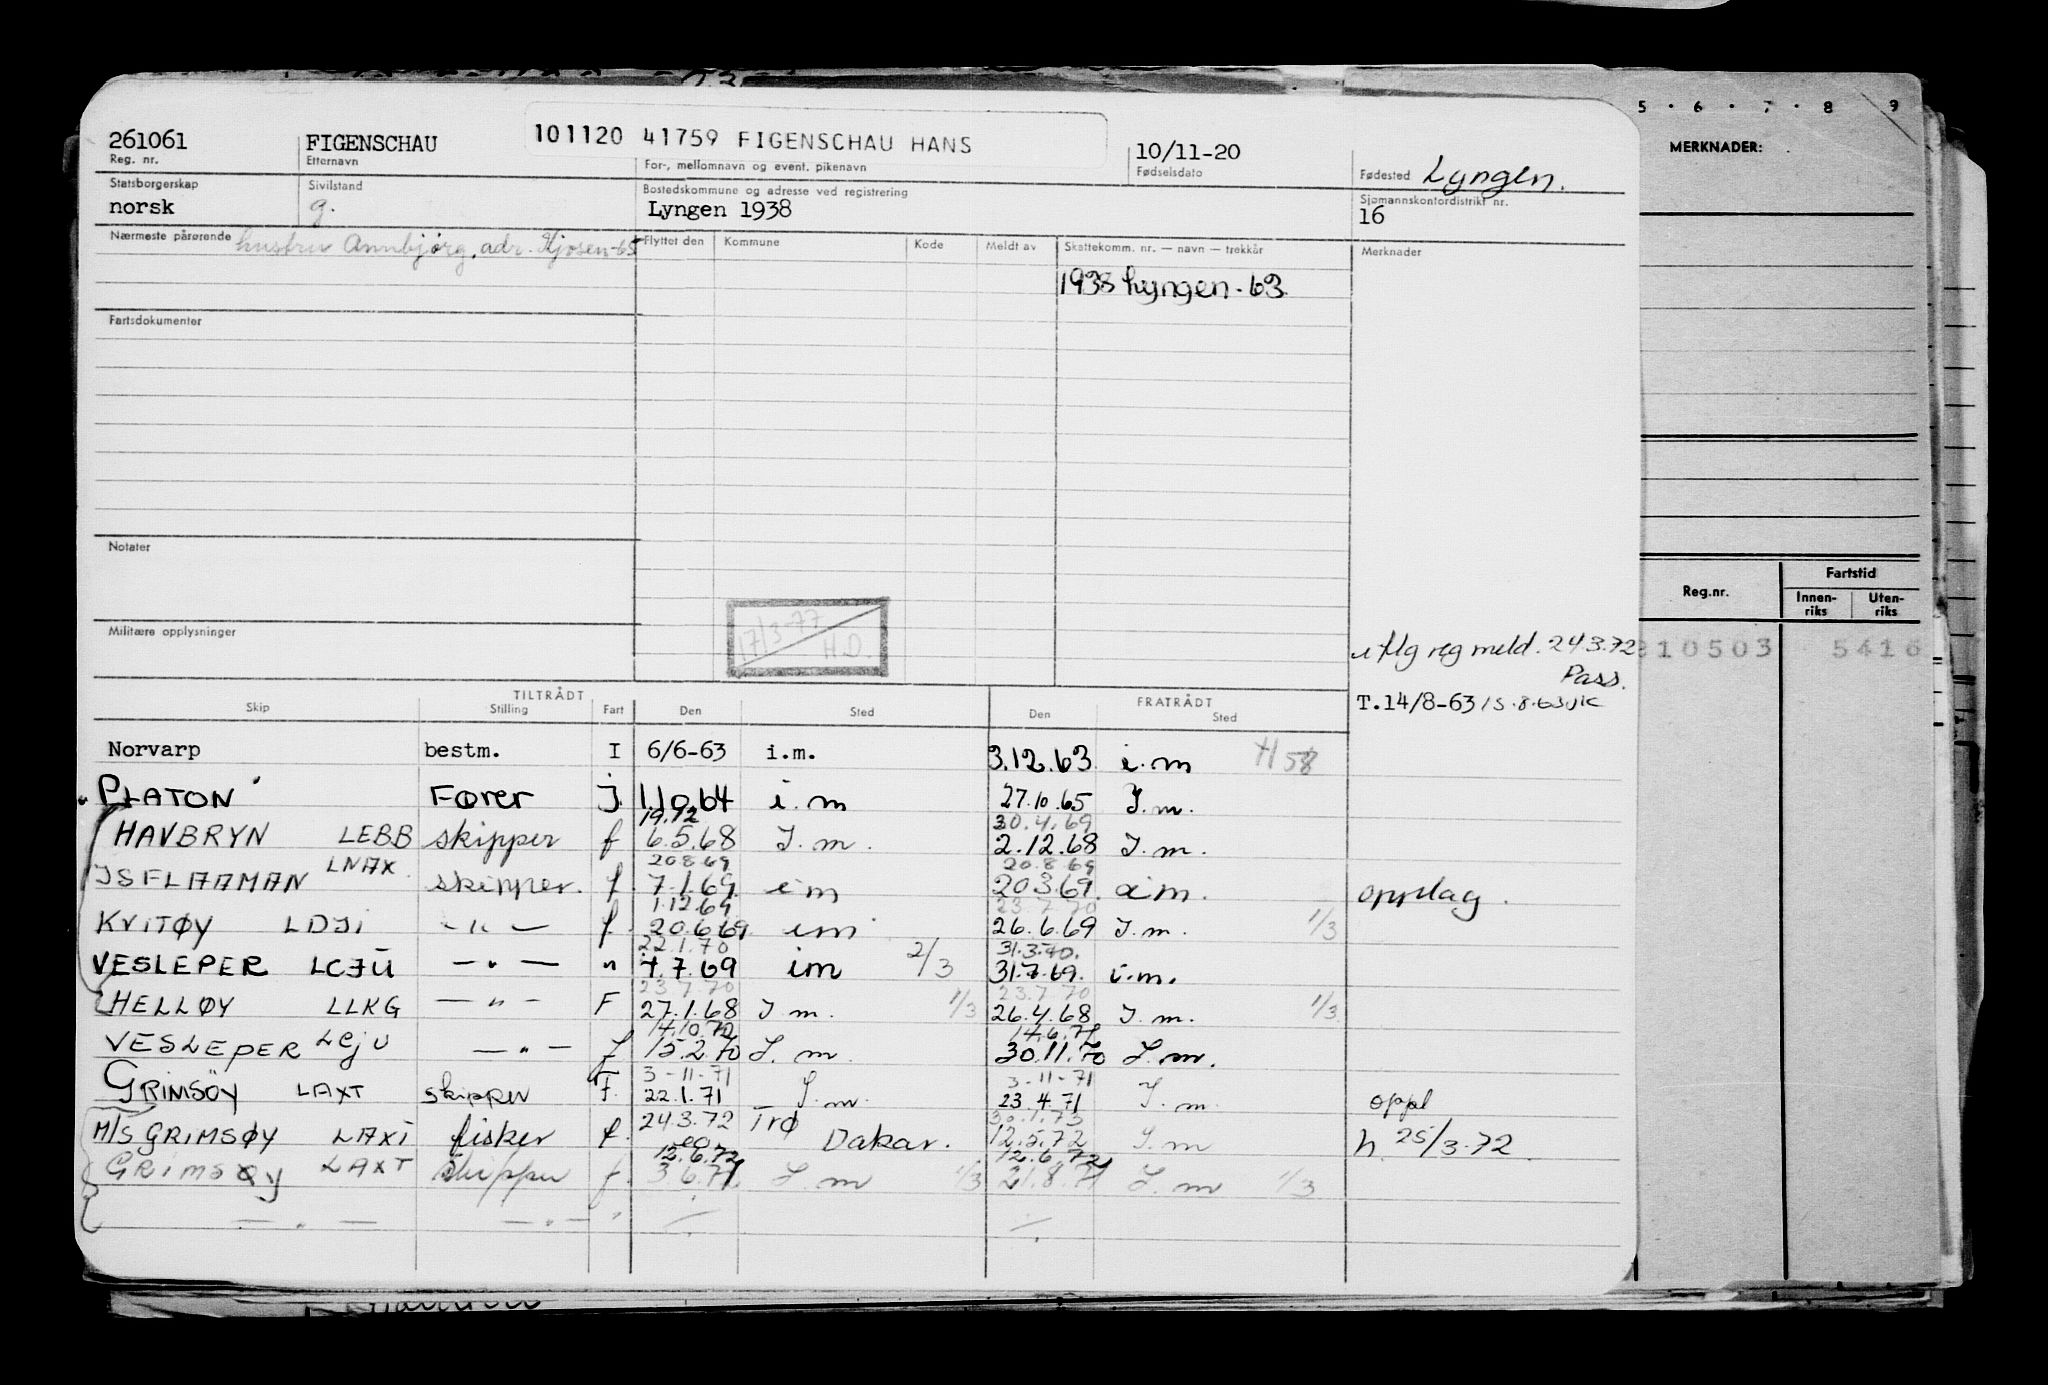 5 · 6 · 7 · 8 9
MERKNADER:
261061 FIGENSCHAU 101120 41759 FIGENSCHAU HANS 10/11-20
Reg. nr. Etternavn For-, mellomnavn og event. pikenavn Fødselsdato Fødested Lyngen.
Statsborgerskap Sivilstand Bostedskommune og adresse ved registrering Sjømannskontordistrikt nr.
norsk g. Lyngen 1938 16
Nærmeste pårørende hustru Annbjørg, adr. Kjosen-65 Flyttet den Kommune Kode Meldt av Skattekomm. nr. — navn — trekkår Merknader
1938 Lyngen - 63.
Fartsdokumenter
Notater
Reg.nr. Fartstid
Innen-riks Uten-riks
17/3-77
H.D.
Militære opplysninger
reg meld. 24.3.72
Pass.
310503 5416
TILTRÅDT FRATRÅDT
Skip Stilling Fart Den Sted Den Sted
T.14/8-63
Norvarp bestm. I 6/6-63 i.m. 3.12.63 i.m H 58
PLATON Fører j. 1.10.64 i.m 27.10.65 I.m.
19.72 30.4.69
HAVBRYN LEBB skipper f 6.5.68 I.m. 2.12.68 I.m.
20 8 69 20.8 69
ISFLAAMAN LNAX skipper. f. 7.1.69 im 20.3.69. im. opptlag.
1.12.69 23.7.70
KVITØY LDJI — " — f. 20.6.69 im 26.6.69 I.m. 1/3
22.1.70 31.3.70.
VESLEPER LCJU — " — " 7.7.69 im 2/3 31.7.69. i.m.
23 7 70 23.7 70
HELLØY LLKG — " — F 27.1.68 I.m. 1/3 26.4.68 I.m. 1/3
14.10.72 14.6.72
VESLEPER LCJU — " — f 15.2.70 I.m. 30.11.70 I.m.
3-11-71 3-11-71
GRIMSÖY LAXT skipper F. 22.1.71 I.m. 23.4.71 I.m. oppl
30.1.73
M/S GRIMSØY LAXT fisker f. 24.3.72 Trø Dakar. 12.5.72 I.m h. 25/3.72.
12.6.72 12.6.72
GRIMSØY LAXT skipper f. 3.6.71 I.m 1/3 21.8.71 I.m 1/3
— " — — " — "